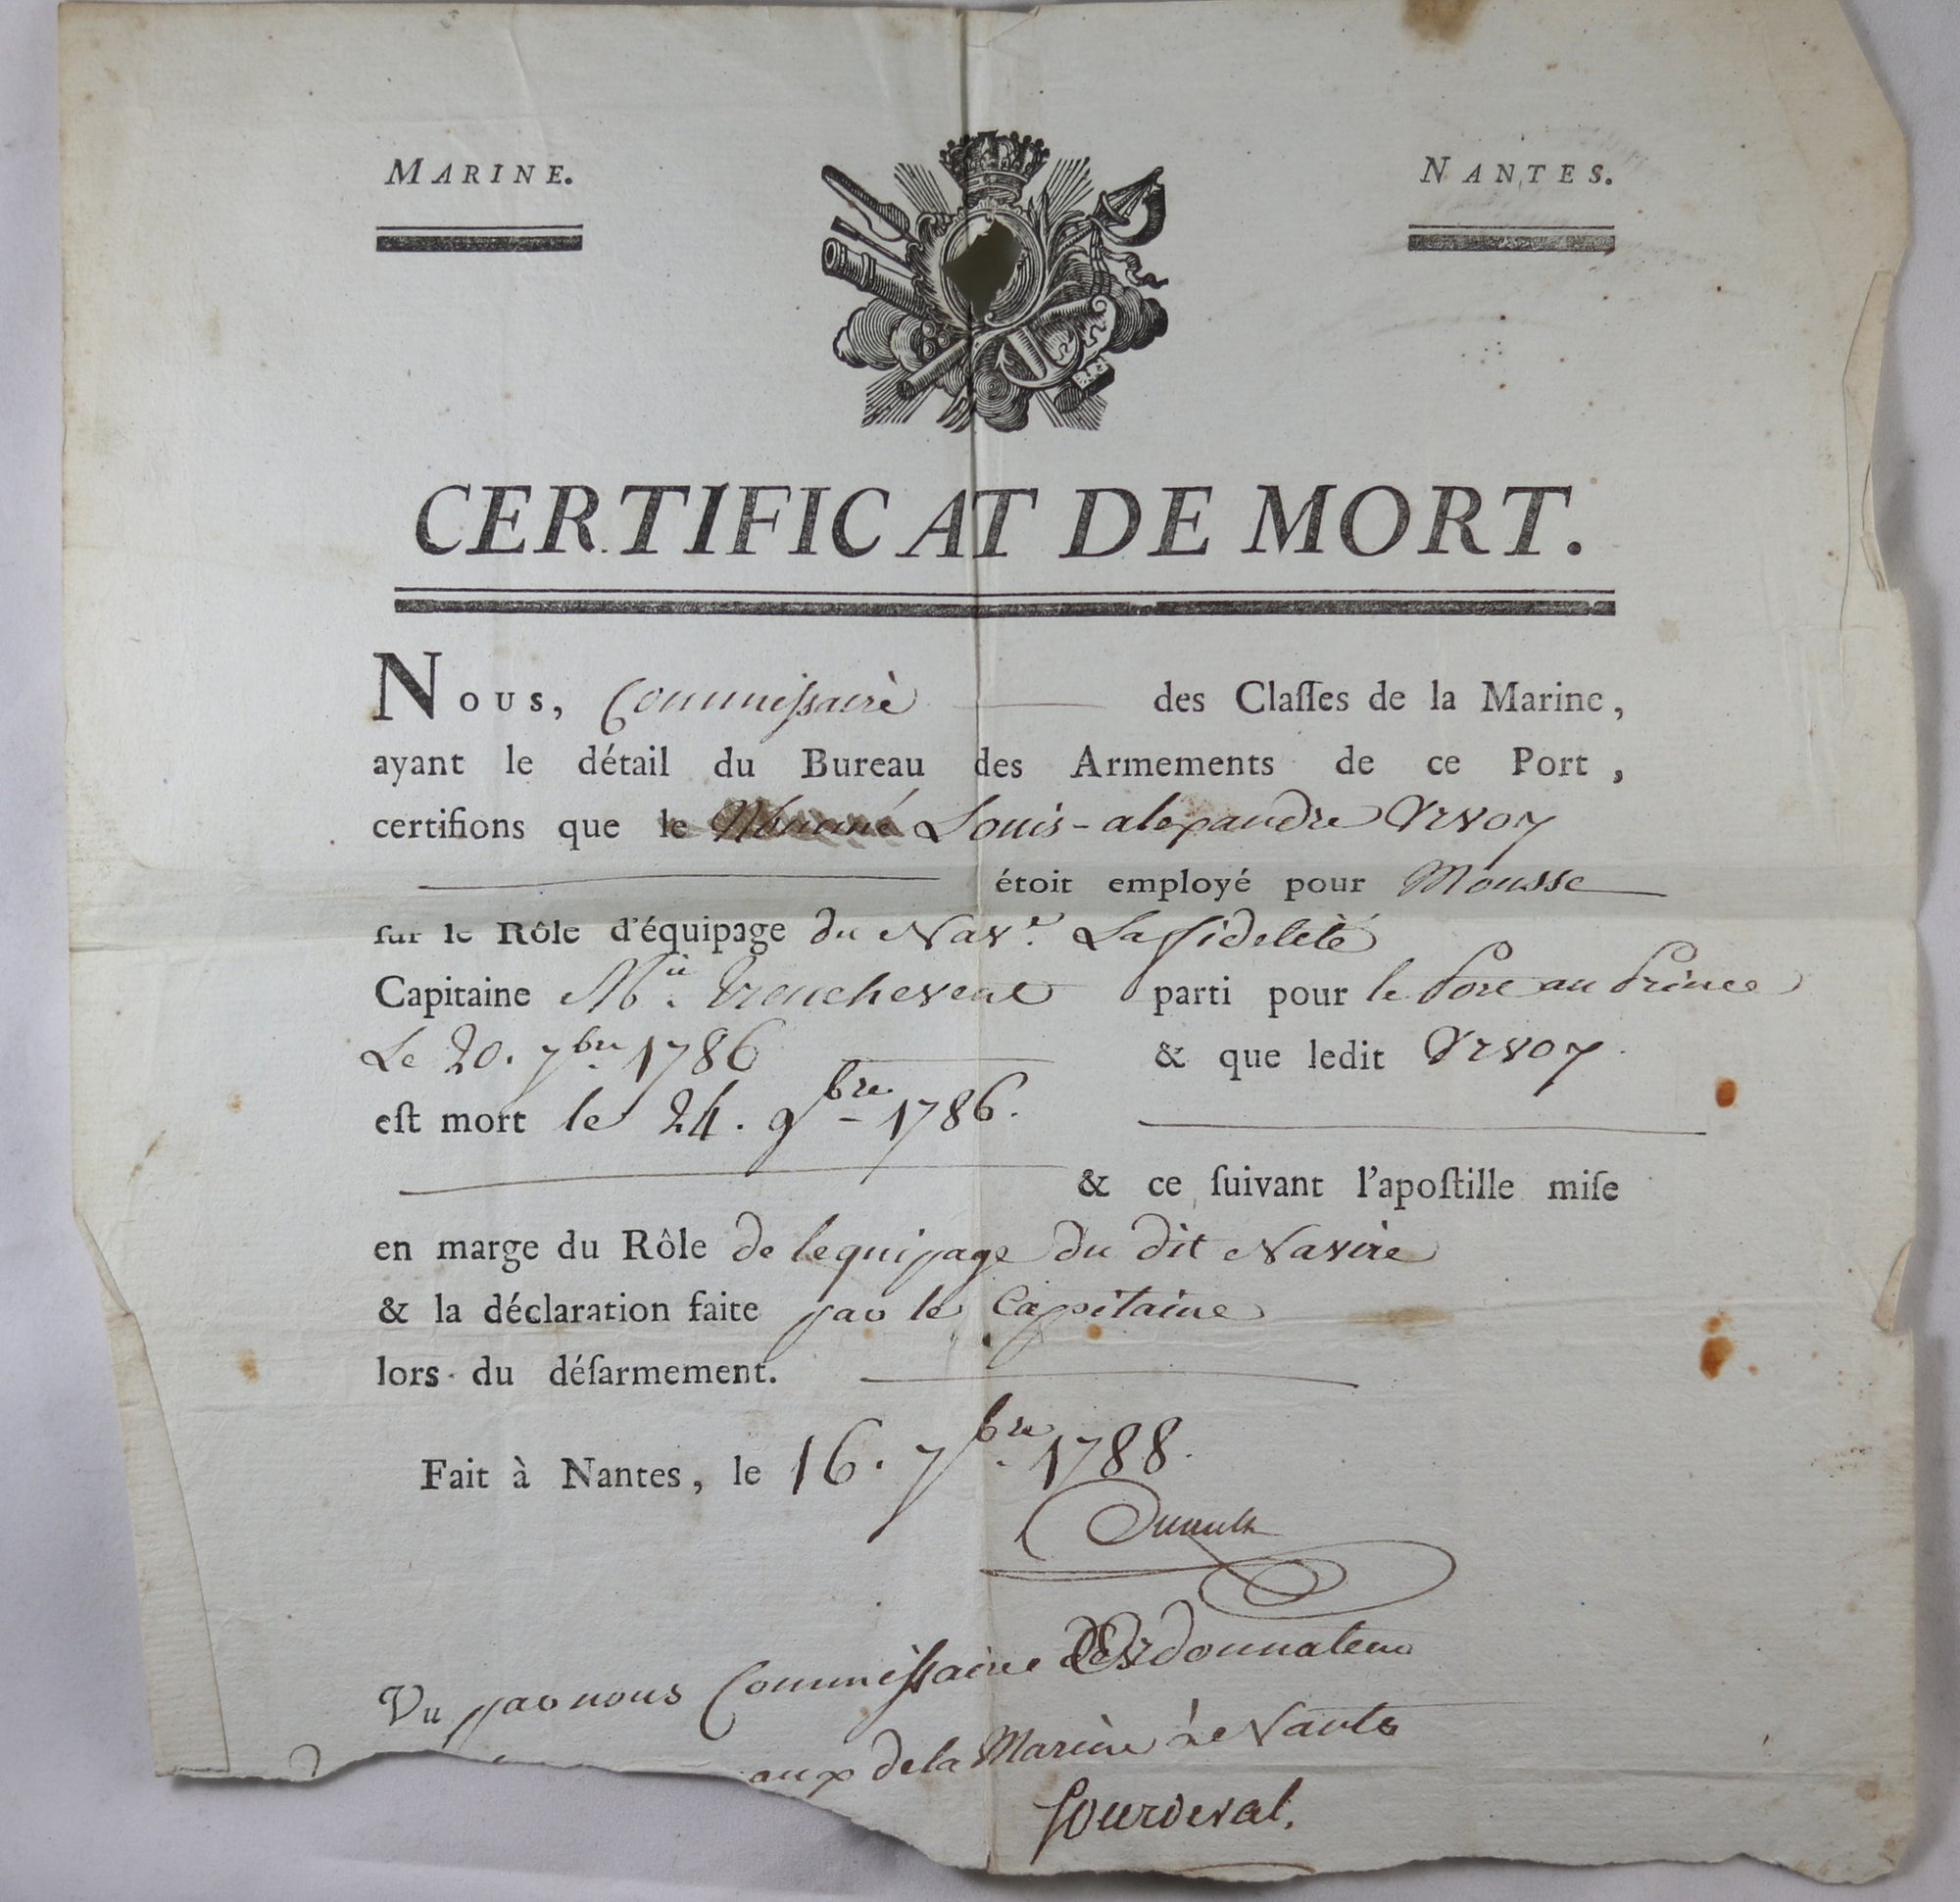 MARINE. NANTES.
CERTIFICAT DE MORT.
Nous, Commissaire des Claſſes de la Marine,
ayant le détail du Bureau des Armements de ce Port,
certifions que le Louis-alexandre Urvoy
étoit employé pour Mousse
ſur le Rôle d'équipage du Nav.e La fideleté
Capitaine parti pour le Port au Prince
Le 20. 7bre 1786 & que ledit Urvoy.
eſt mort le 24. 9bre 1786.
& ce ſuivant l'apoſtille miſe
en marge du Rôle de lequipage du dit Navire
& la déclaration faite par le Capitaine
lors du déſarmement.
Fait à Nantes, le 16. 7bre 1788.
Vu par nous Commissaire Ordonnateur
aux de la Marine à Nantes
Gourdeval.